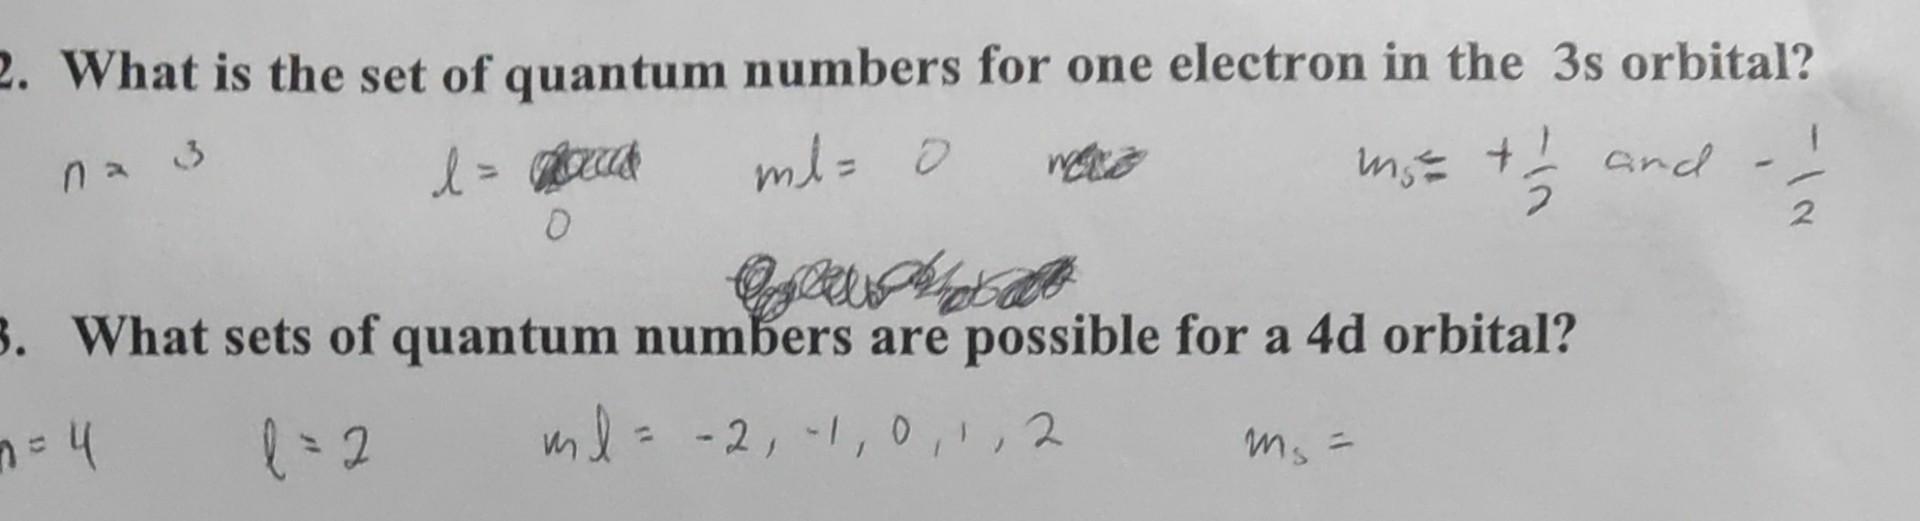 2. What is the set of quantum numbers for one electron in the 3s orbital?
n = 3 l = ml = 0 ms = + 1/2 and - 1/2
0
3. What sets of quantum numbers are possible for a 4d orbital?
n = 4 l = 2 ml = -2, -1, 0, 1, 2 ms =